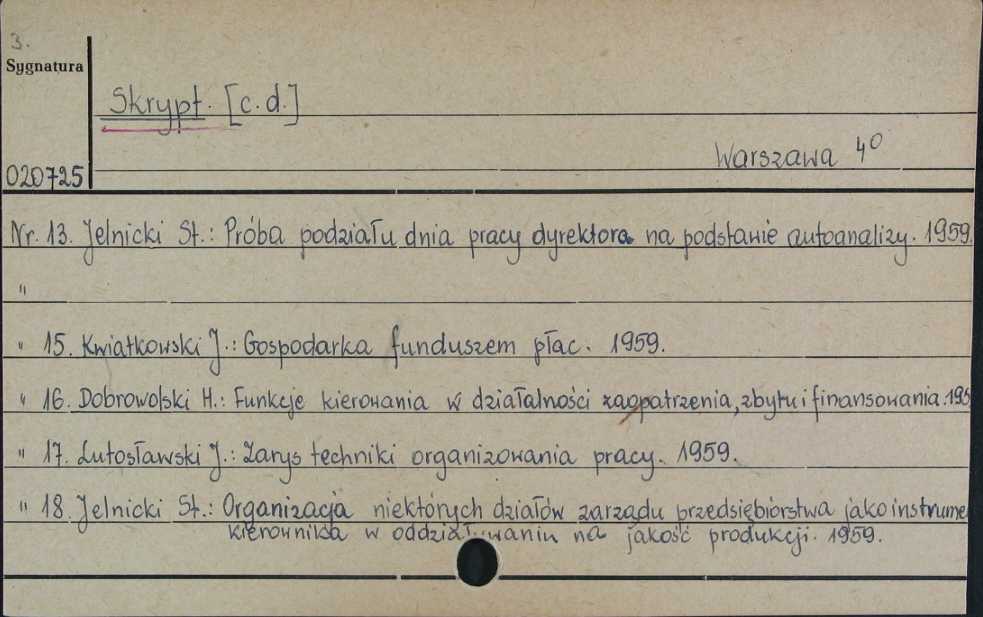 3.
Sygnatura
Skrypt. [c.d.]
Warszawa 4°
020725
Nr. 13. Jelnicki St.: Próba podziału dnia pracy dyrektora na podstawie autoanalizy. 1959.
"
" 15. Kwiatkowski J.: Gospodarka funduszem płac. 1959.
" 16. Dobrowolski H.: Funkcje kierowania w działalności zaopatrzenia, zbytu i finansowania. 195
" 17. Lutosławski J.: Zarys techniki organizowania pracy. 1959.
" 18. Jelnicki St.: Organizacja niektórych działów zarządu przedsiębiorstwa jako instrume
kierownika w oddziaływaniu na jakość produkcji. 1959.